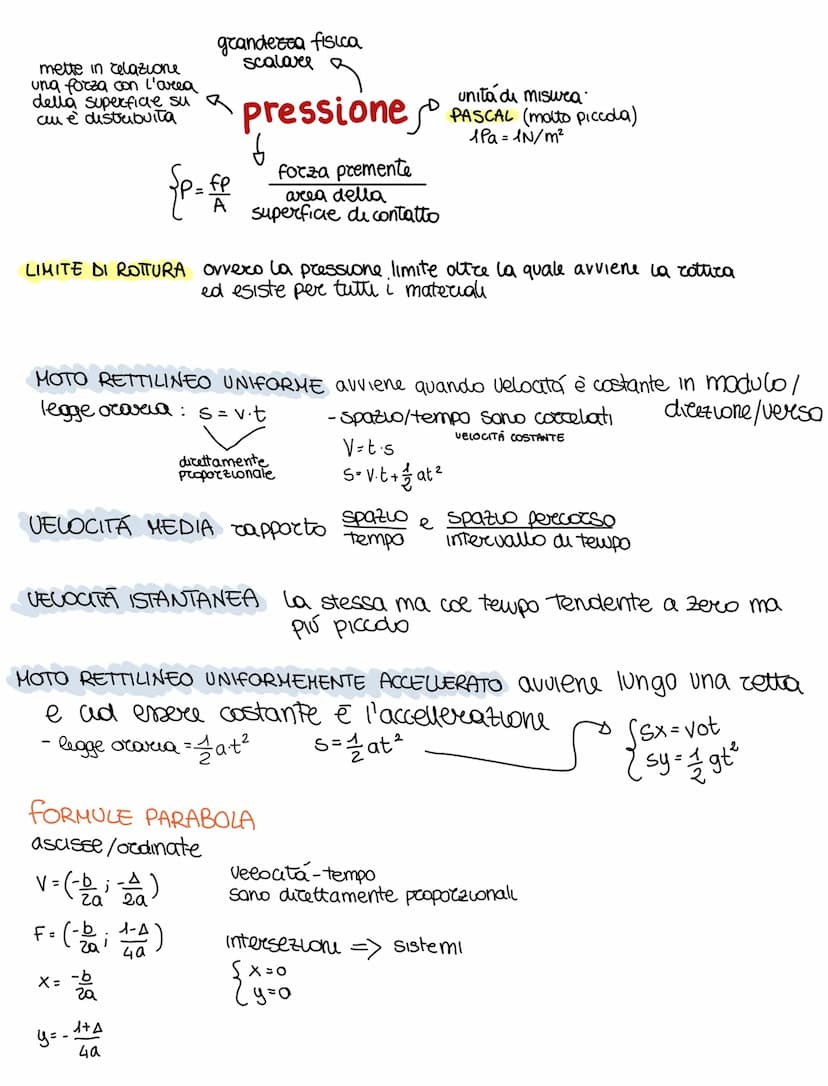 grandezza fisica
scalare
mette in relazione
una forza con l'area
della superficie su
cui è distribuita
pressione
unitá di misura:
PASCAL (molto piccola)
1Pa = 1N/m²
{P = fp/A
forza premente
area della
superficie di contatto
LIMITE DI ROTTURA ovvero la pressione limite oltre la quale avviene la rottura
ed esiste per tutti i materiali
MOTO RETTILINEO UNIFORME avviene quando velocitá è costante in modulo/
direzione/verso
legge oraria: s = v·t
direttamente
proporzionale
- spazio/tempo sono correlati
VELOCITÁ COSTANTE
V = t·s
s = v.t + 1/2 at²
VELOCITÁ MEDIA rapporto spazio/tempo e spazio percorso/intervallo di tempo
VELOCITÁ ISTANTANEA la stessa ma col tempo tendente a zero ma
piú piccolo
MOTO RETTILINEO UNIFORMEMENTE ACCELLERATO avviene lungo una retta
e ad essere costante è l'accellerazione
- legge oraria = 1/2 a·t²
s = 1/2 at²
{sx = vot
sy = 1/2 gt²
FORMULE PARABOLA
ascisse/ordinate
V = (-b/2a ; -Δ/2a)
F = (-b/2a ; 1-Δ/4a)
x = -b/2a
y = - 1+Δ/4a
velocitá-tempo
sono direttamente proporzionali
intersezioni => sistemi
{x=0
y=0